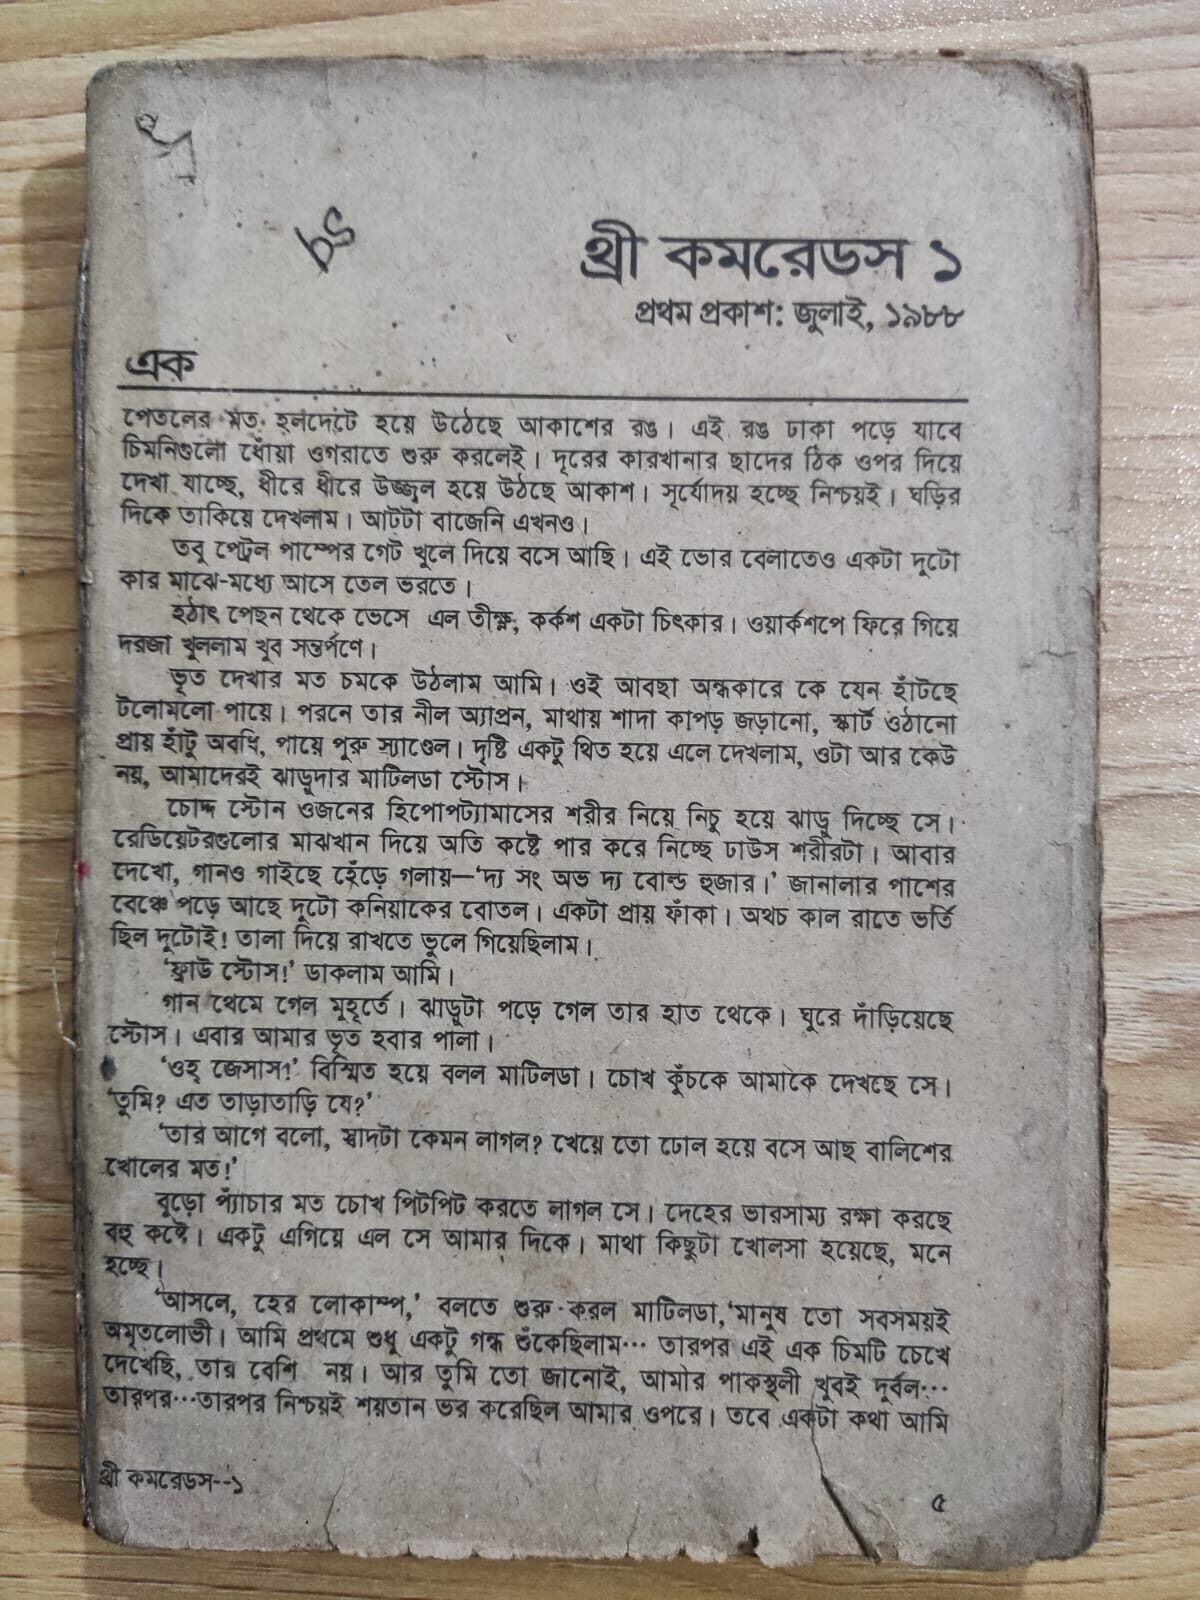 থ্রী কমরেডস ১
প্রথম প্রকাশ: জুলাই, ১৯৮৮
এক
পেতলের মত হলদেটে হয়ে উঠেছে আকাশের রঙ। এই রঙ ঢাকা পড়ে যাবে
চিমনিগুলো ধোঁয়া ওগরাতে শুরু করলেই। দূরের কারখানার ছাদের ঠিক ওপর দিয়ে
দেখা যাচ্ছে, ধীরে ধীরে উজ্জ্বল হয়ে উঠছে আকাশ। সূর্যোদয় হচ্ছে নিশ্চয়ই। ঘড়ির
দিকে তাকিয়ে দেখলাম। আটটা বাজেনি এখনও।
তবু পেট্রল পাম্পের গেট খুলে দিয়ে বসে আছি। এই ভোর বেলাতেও একটা দুটো
কার মাঝে-মধ্যে আসে তেল ভরতে।
হঠাৎ পেছন থেকে ভেসে এল তীক্ষ্ণ, কর্কশ একটা চিৎকার। ওয়ার্কশপে ফিরে গিয়ে
দরজা খুললাম খুব সন্তর্পণে।
ভূত দেখার মত চমকে উঠলাম আমি। ওই আবছা অন্ধকারে কে যেন হাঁটছে
টলোমলো পায়ে। পরনে তার নীল অ্যাপ্রন, মাথায় শাদা কাপড় জড়ানো, স্কার্ট ওঠানো
প্রায় হাঁটু অবধি, পায়ে পুরু স্যাণ্ডেল। দৃষ্টি একটু থিত হয়ে এলে দেখলাম, ওটা আর কেউ
নয়, আমাদেরই ঝাড়ুদার মাটিলডা স্টোস।
চোদ্দ স্টোন ওজনের হিপোপট্যামাসের শরীর নিয়ে নিচু হয়ে ঝাড়ু দিচ্ছে সে।
রেডিয়েটরগুলোর মাঝখান দিয়ে অতি কষ্টে পার করে নিচ্ছে ঢাউস শরীরটা। আবার
দেখো, গানও গাইছে হেঁড়ে গলায়—‘দ্য সং অভ দ্য বোল্ড হুজার।’ জানালার পাশের
বেঞ্চে পড়ে আছে দুটো কনিয়াকের বোতল। একটা প্রায় ফাঁকা। অথচ কাল রাতে ভর্তি
ছিল দুটোই! তালা দিয়ে রাখতে ভুলে গিয়েছিলাম।
‘ফ্রাউ স্টোস!’ ডাকলাম আমি।
গান থেমে গেল মুহূর্তে। ঝাড়ুটা পড়ে গেল তার হাত থেকে। ঘুরে দাঁড়িয়েছে
স্টোস। এবার আমার ভূত হবার পালা।
‘ওহ্ জেসাস!’ বিস্মিত হয়ে বলল মাটিলডা। চোখ কুঁচকে আমাকে দেখছে সে।
‘তুমি? এত তাড়াতাড়ি যে?’
‘তার আগে বলো, স্বাদটা কেমন লাগল? খেয়ে তো ঢোল হয়ে বসে আছ বালিশের
খোলের মত!’
বুড়ো প্যাঁচার মত চোখ পিটপিট করতে লাগল সে। দেহের ভারসাম্য রক্ষা করছে
বহু কষ্টে। একটু এগিয়ে এল সে আমার দিকে। মাথা কিছুটা খোলসা হয়েছে, মনে
হচ্ছে।
‘আসলে, হের লোকাম্প,’ বলতে শুরু করল মাটিলডা, ‘মানুষ তো সবসময়ই
অমৃতলোভী। আমি প্রথমে শুধু একটু গন্ধ শুঁকেছিলাম… তারপর এই এক চিমটি চেখে
দেখেছি, তার বেশি নয়। আর তুমি তো জানোই, আমার পাকস্থলী খুবই দুর্বল…
তারপর…তারপর নিশ্চয়ই শয়তান ভর করেছিল আমার ওপরে। তবে একটা কথা আমি
থ্রী কমরেডস--১
৫